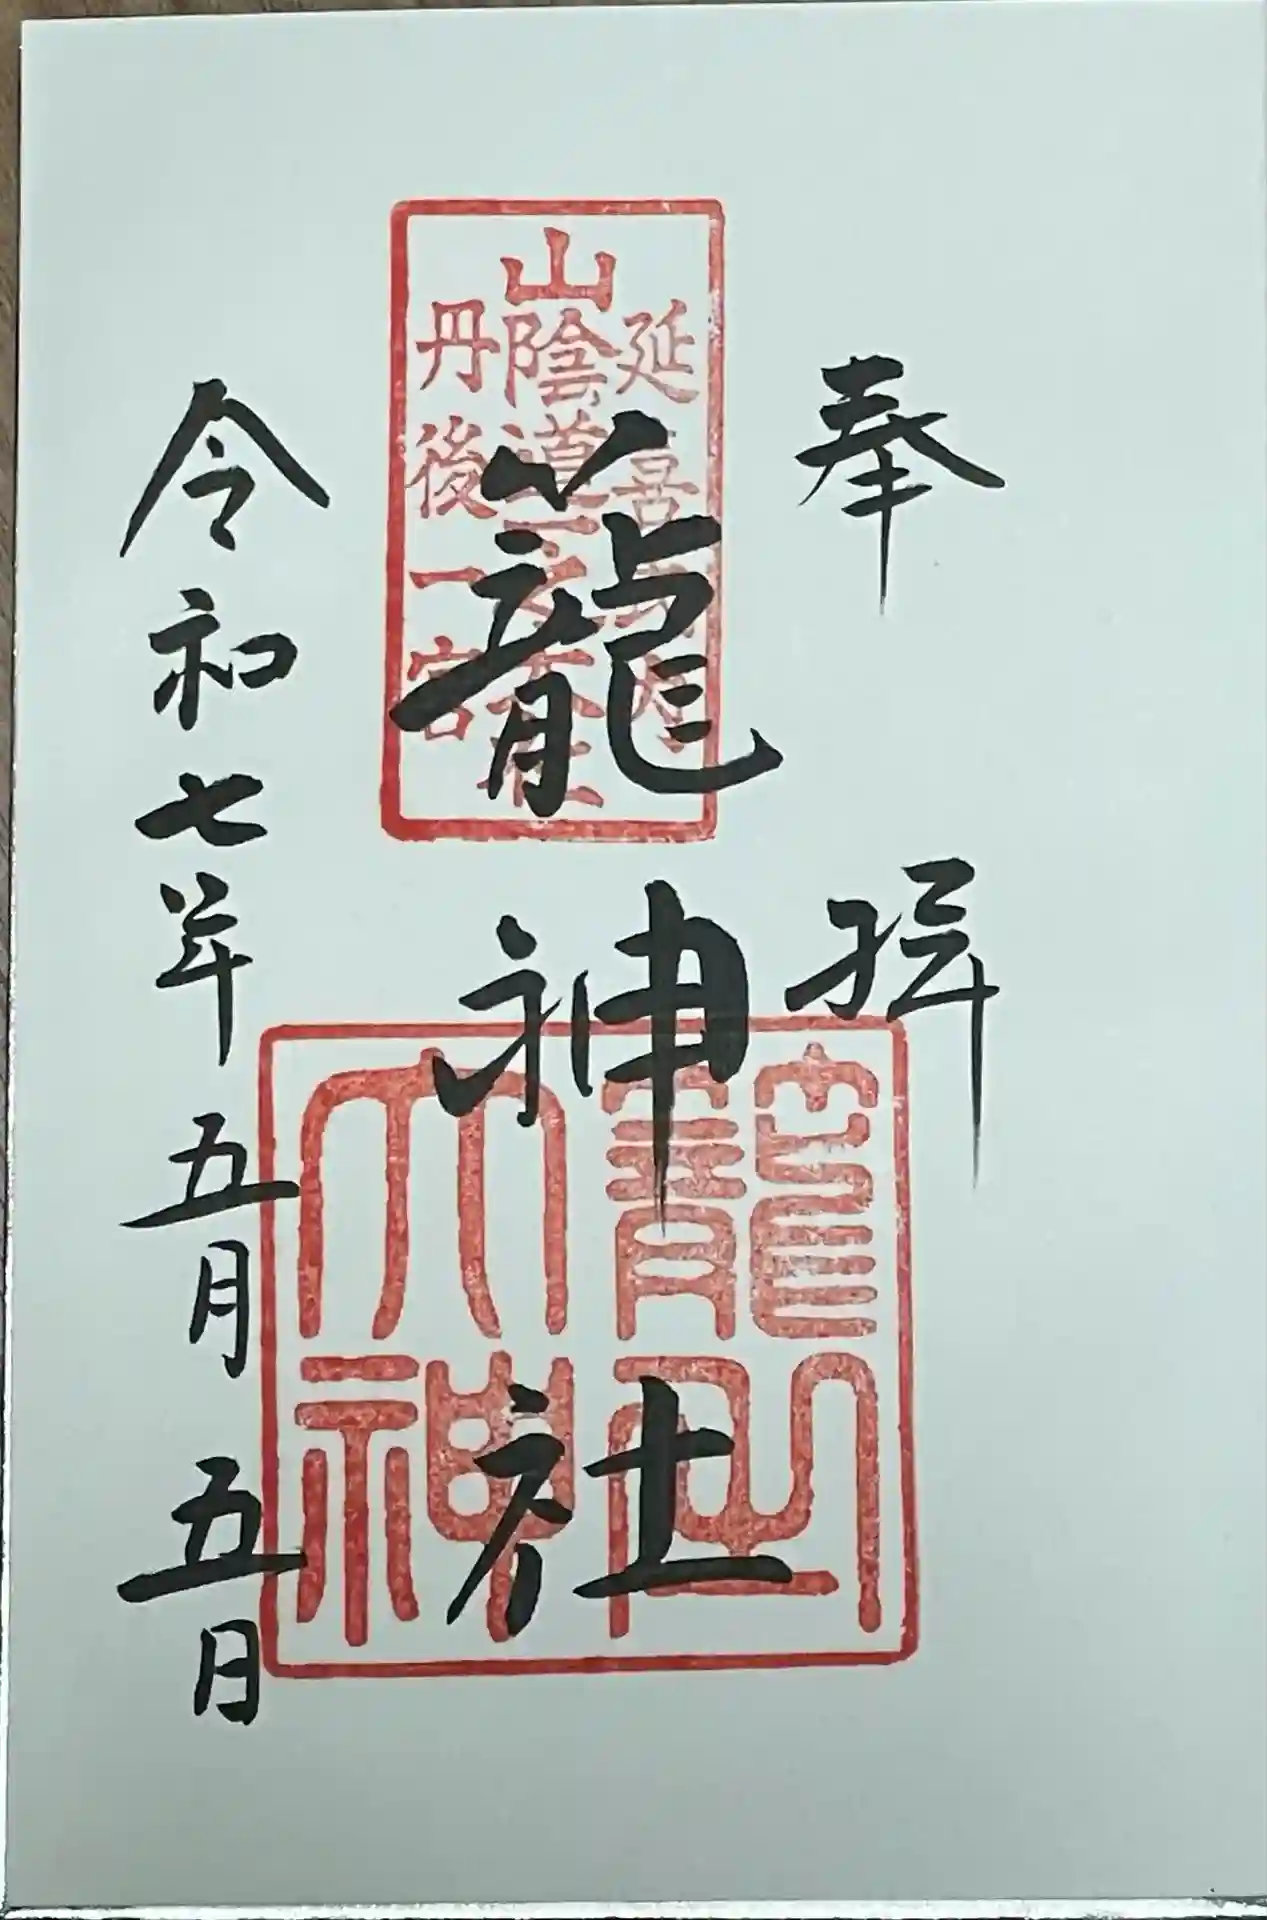 奉拝
籠神社
令和七年五月五日
延喜式内
山陰道一之大社
丹後一宮
籠之大神